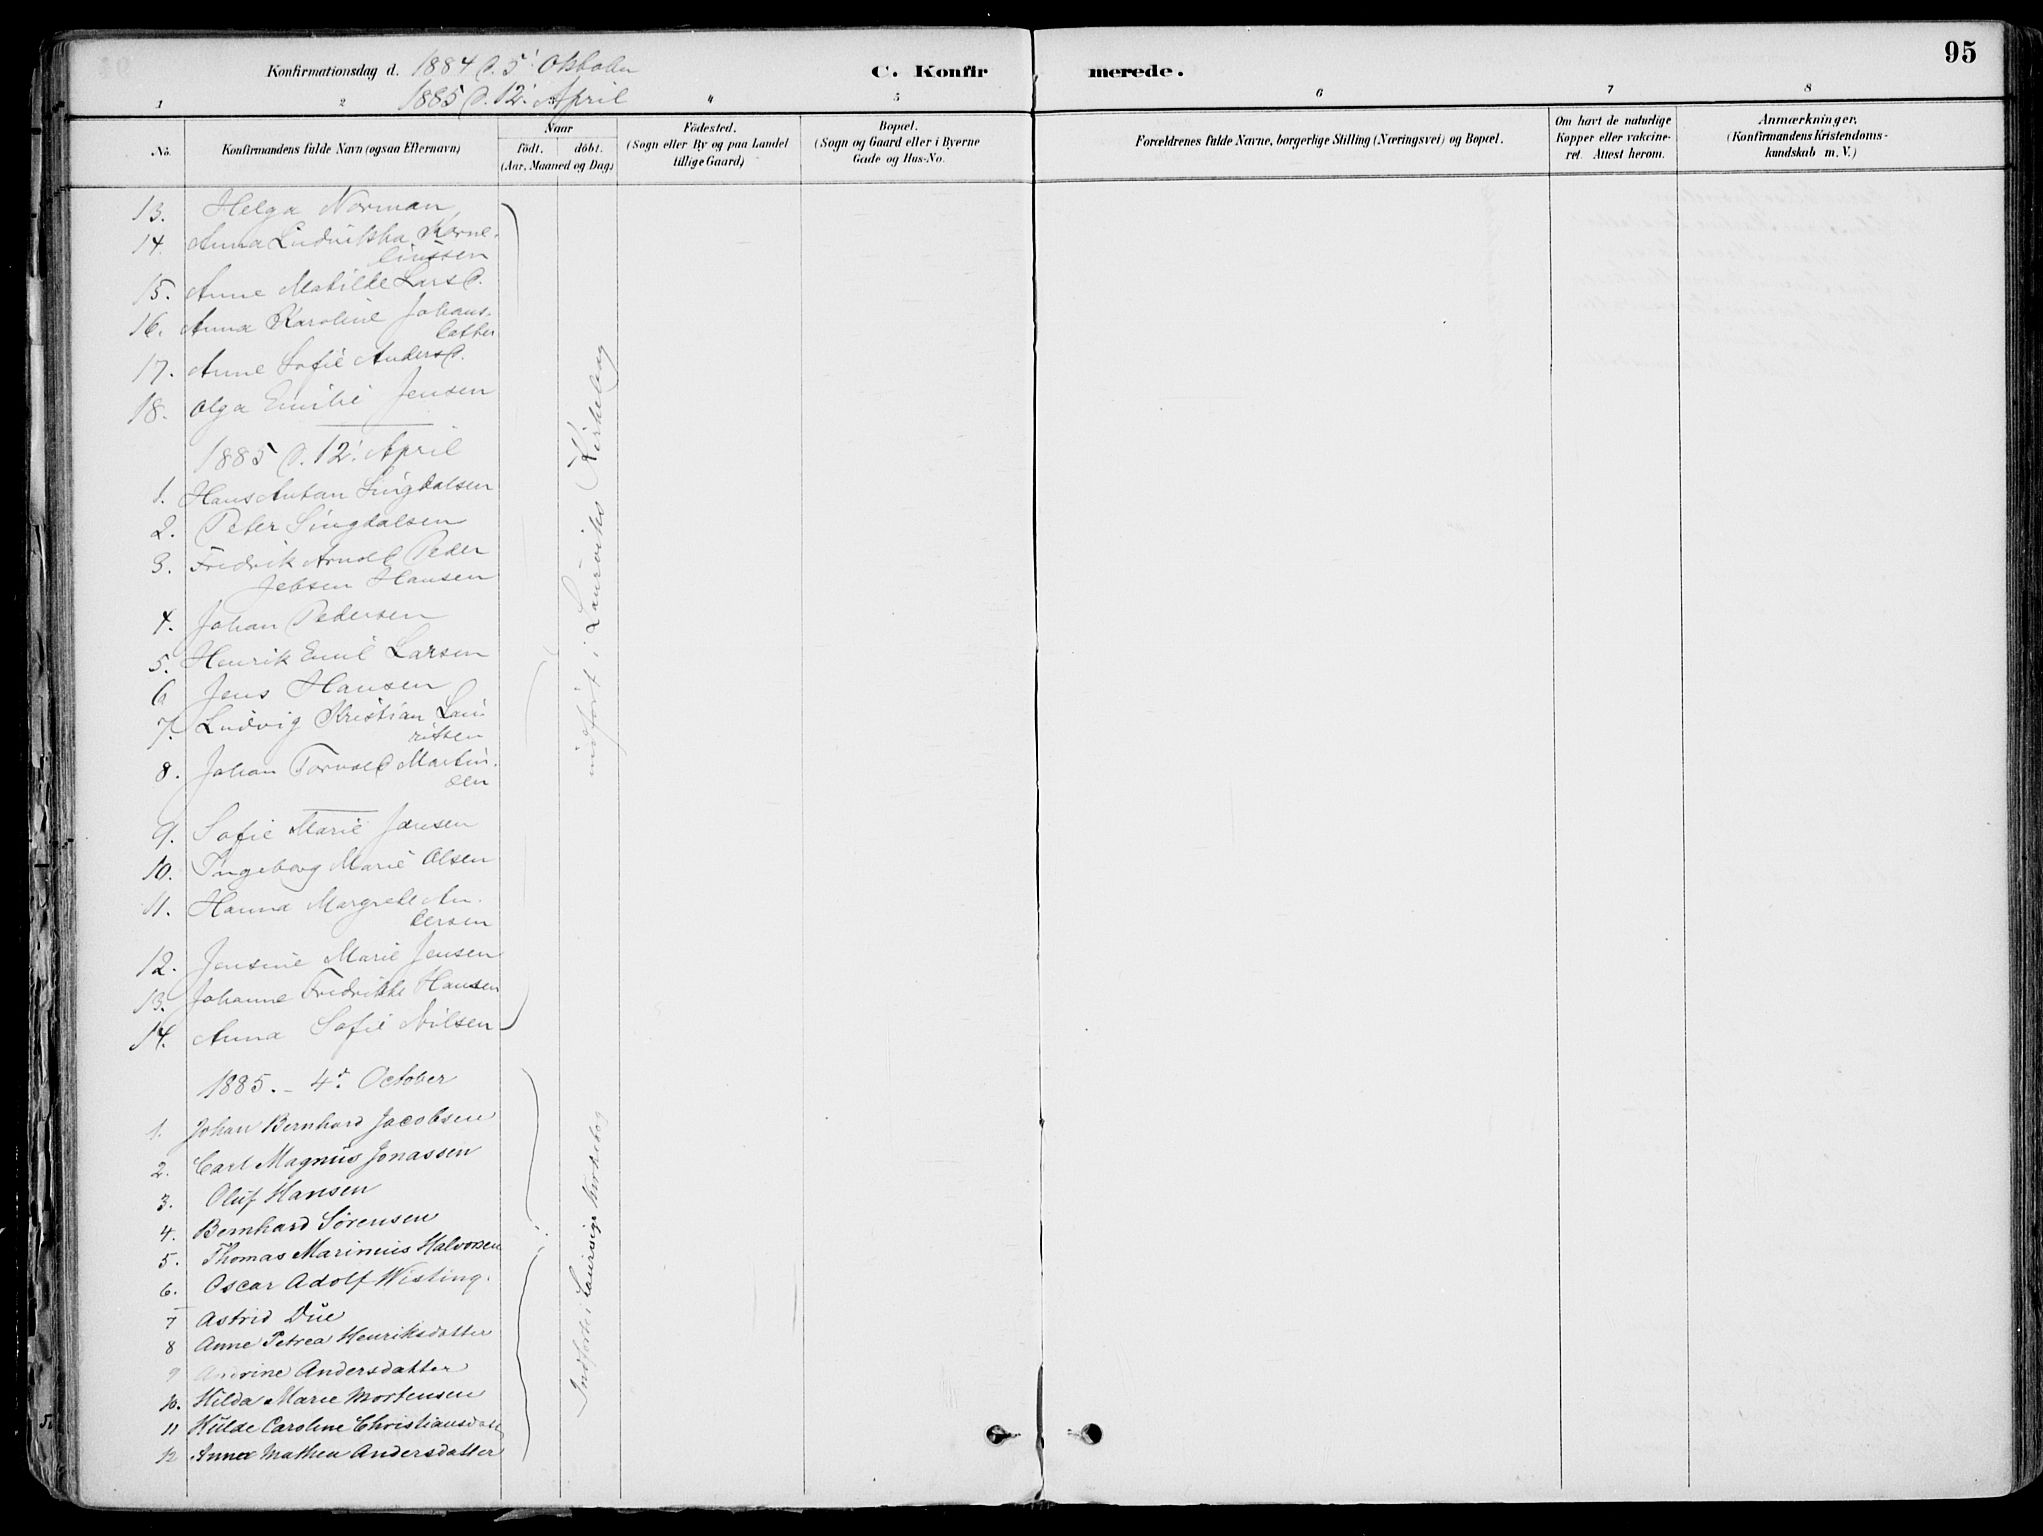 95
Konfirmationsdag d. 1884 d. 5' Oktober
1885 d. 12' April
C. Konfirmerede.
1 2 4 5 6 7 8
No.
Konfirmandens fulde Navn (ogsaa Efternavn)
Naar
födt. döbt.
(Aar, Maaned og Dag)
Födested.
(Sogn eller By og paa Landet
tillige Gaard)
Bopæl.
(Sogn og Gaard eller i Byerne
Gade og Hus-No.
Forældrenes fulde Navne, borgerlige Stilling (Næringsvei) og Bopæl.
Om havt de naturlige
Kopper eller vakcine-
ret. Attest herom.
Anmærkninger,
(Konfirmandens Kristendoms-
kundskab m. V.)
13. Helga Norman
14. Anna Ludvikka Korne-
liussen
15. Anne Matilde Larsd.
16. Anna Karoline Johans-
datter
17. Anne Sofie Andersd.
18. Olga Emilie Jensen
1885 d. 12' April
1. Hans Anton Lingdalsen
2. Peter Lingdalsen
3. Fredrik Arnold Peder
Jebsen Hansen
4. Johan Pedersen
5. Henrik Emil Larsen
6 Jens Hansen
7. Ludvig Kristian Lau-
ritsen
8. Johan Torvald Martin-
sen
9. Sofie Marie Jensen
10. Ingeborg Marie Olsen
11. Hanna Margrete An-
dersen
12. Jensine Marie Jensen
13. Johanne Fredrikke Hansen
14. Anna Sofie Nilsen
indført i Laurviks Kirkebog
1885. - 4' October
1. Johan Bernhard Jacobsen
2. Carl Magnus Jonassen
3. Oluf Hansen
4. Bernhard Sørensen
5. Thomas Marinius Halvorsen
6. Oscar Adolf Wisting.
7 Astrid Due
8 Anne Petrea Henriksdatter
9 Andrine Andersdatter
10. Hilda Marie Mortensen
11 Hulde Caroline Christiansdatt
12 Anna Mathea Andersdatter
Indførte i Laurvigs Kirkebog